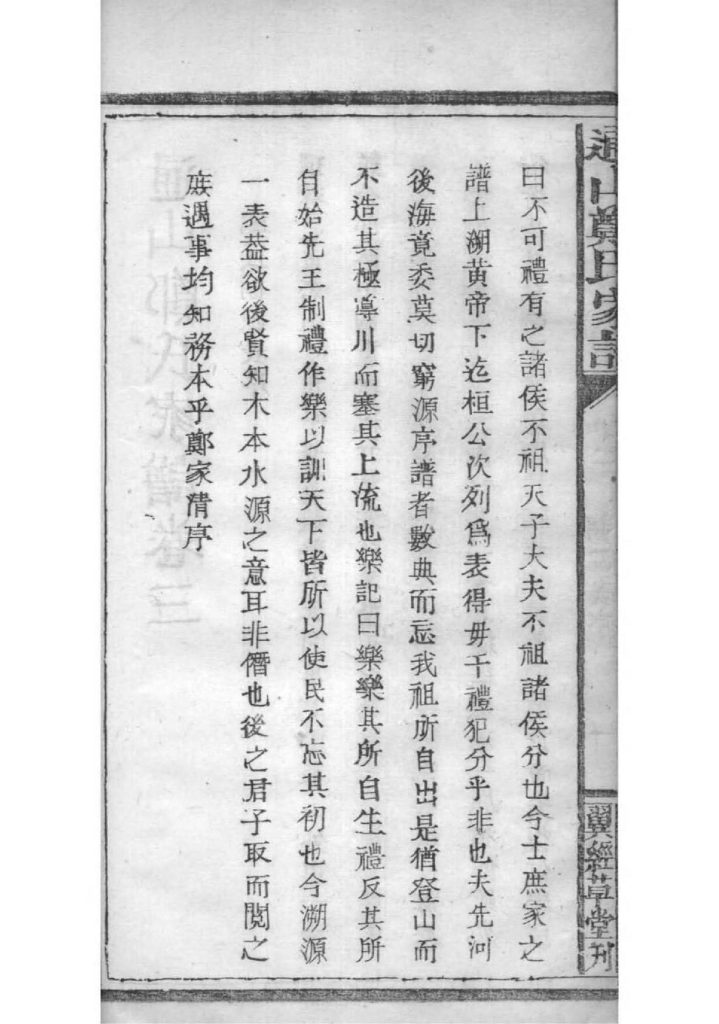 通山鄭氏家譜
翼經草堂刊
曰不可禮有之諸侯不祖天子大夫不祖諸侯分也今士庶家之
譜上溯黃帝下迄桓公次列爲表得毋干禮犯分乎非也夫先河
後海竟委莫切窮源序譜者數典而忘我祖所自出是猶登山而
不造其極導川而塞其上流也樂記曰樂樂其所自生禮反其所
自始先王制禮作樂以訓天下皆所以使民不忘其初也今溯源
一表葢欲後賢知木本水源之意耳非僭也後之君子取而閱之
庶遇事均知務本乎鄭家清序